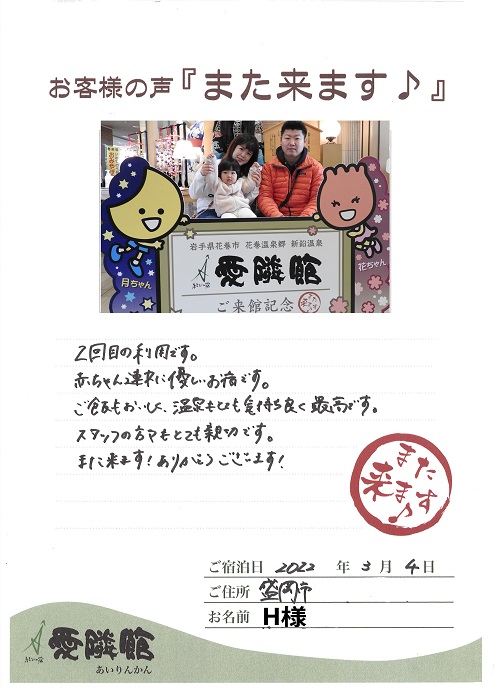 お客様の声『また来ます♪』
月ちゃん
花ちゃん
岩手県花巻市 花巻温泉郷 新鉛温泉
愛隣館
ご来館記念
2回目の利用です。
赤ちゃん連れに優しいお宿です。
ご飯もおいしく、温泉もとても気持ち良く最高です。
スタッフの方々もとても親切です。
また来ます!ありがとうございます!
また
来ます♪
ご宿泊日 2022 年 3 月 4 日
ご住所 盛岡市
お名前 H様
愛隣館
あいりんかん